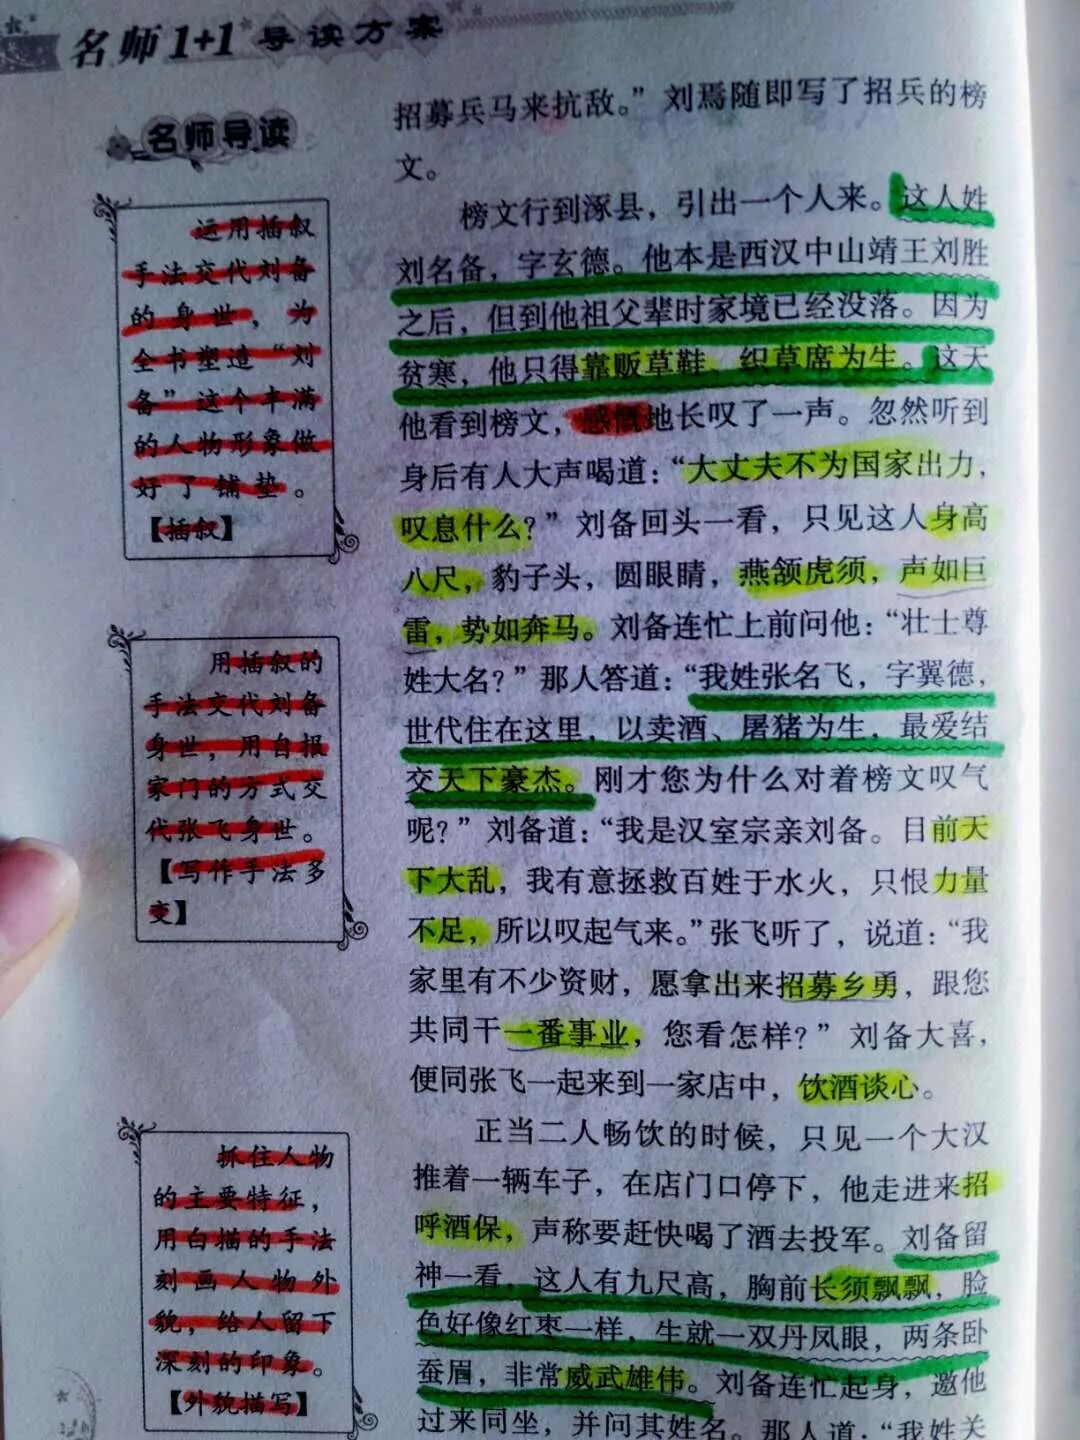 名师1+1导读方案
名师导读
运用插叙
手法交代刘备
的身世，为
全书塑造“刘
备”这个丰满
的人物形象做
好了铺垫。
【插叙】
用插叙的
手法交代刘备
身世，用自报
家门的方式交
代张飞身世。
【写作手法多
变】
抓住人物
的主要特征，
用白描的手法
刻画人物外
貌，给人留下
深刻的印象。
【外貌描写】
招募兵马来抗敌。”刘焉随即写了招兵的榜
文。
榜文行到涿县，引出一个人来。这人姓
刘名备，字玄德。他本是西汉中山靖王刘胜
之后，但到他祖父辈时家境已经没落。因为
贫寒，他只得靠贩草鞋、织草席为生。这天
他看到榜文，感慨地长叹了一声。忽然听到
身后有人大声喝道：“大丈夫不为国家出力，
叹息什么？”刘备回头一看，只见这人身高
八尺，豹子头，圆眼睛，燕颔虎须，声如巨
雷，势如奔马。刘备连忙上前问他：“壮士尊
姓大名？”那人答道：“我姓张名飞，字翼德，
世代住在这里，以卖酒、屠猪为生，最爱结
交天下豪杰。刚才您为什么对着榜文叹气
呢？”刘备道：“我是汉室宗亲刘备。目前天
下大乱，我有意拯救百姓于水火，只恨力量
不足，所以叹起气来。”张飞听了，说道：“我
家里有不少资财，愿拿出来招募乡勇，跟您
共同干一番事业，您看怎样？”刘备大喜，
便同张飞一起来到一家店中，饮酒谈心。
正当二人畅饮的时候，只见一个大汉
推着一辆车子，在店门口停下，他走进来招
呼酒保，声称要赶快喝了酒去投军。刘备留
神一看，这人有九尺高，胸前长须飘飘，脸
色好像红枣一样，生就一双丹凤眼，两条卧
蚕眉，非常威武雄伟。刘备连忙起身，邀他
过来同坐，并问其姓名。那人道：“我姓关